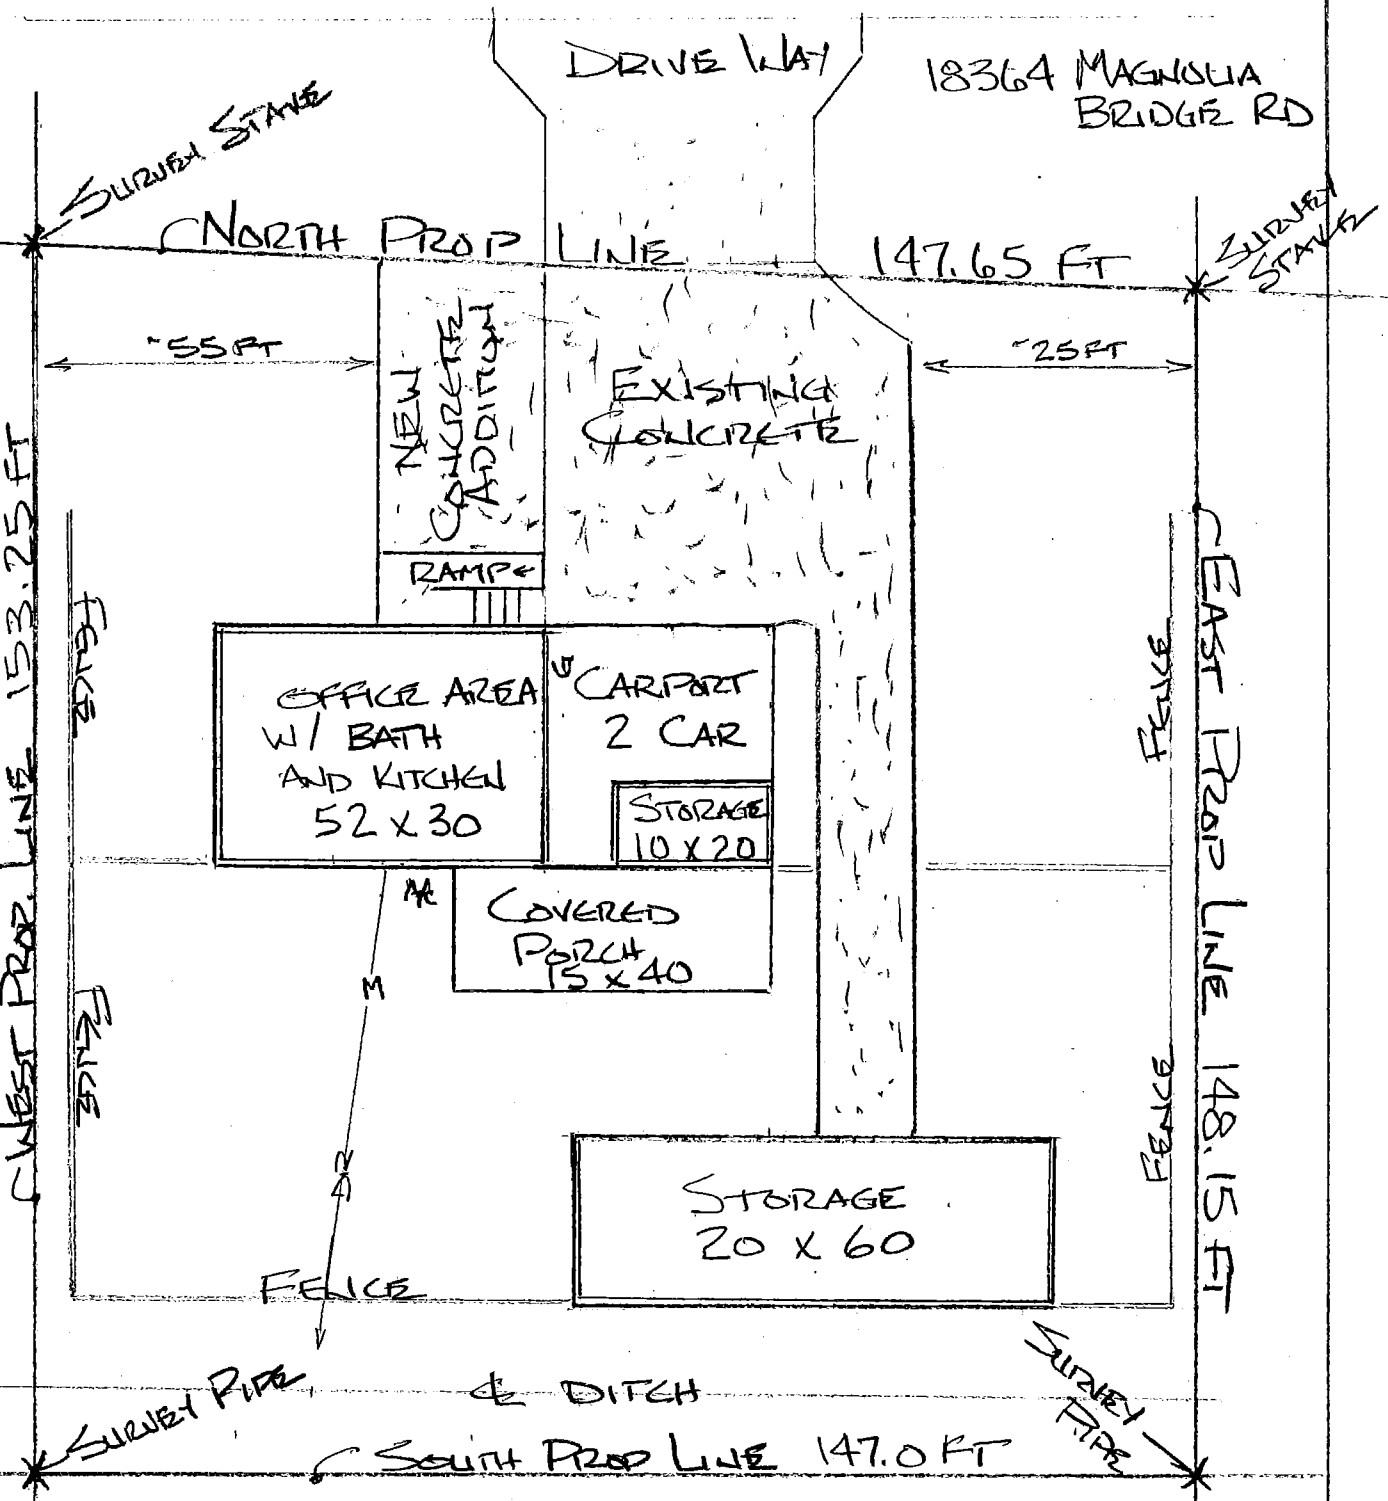 DRIVE WAY
18364 MAGNOLIA
BRIDGE RD
SURVEY STAKE
SURVEY
STAKE
NORTH PROP LINE 147.65 FT
~55 FT
~25 FT
NEW
CONCRETE
ADDITION
EXISTING
CONCRETE
RAMP
WEST PROP. LINE 153.25 FT
EAST PROP LINE 148.15 FT
FENCE
FENCE
OFFICE AREA
W/ BATH
AND KITCHEN
52 X 30
CARPORT
2 CAR
STORAGE
10 X 20
A/C
COVERED
PORCH
15 X 40
M
FENCE
FENCE
STORAGE
20 X 60
FENCE
SURVEY PIPE
SURVEY
PIPE
℄ DITCH
SOUTH PROP LINE 147.0 FT